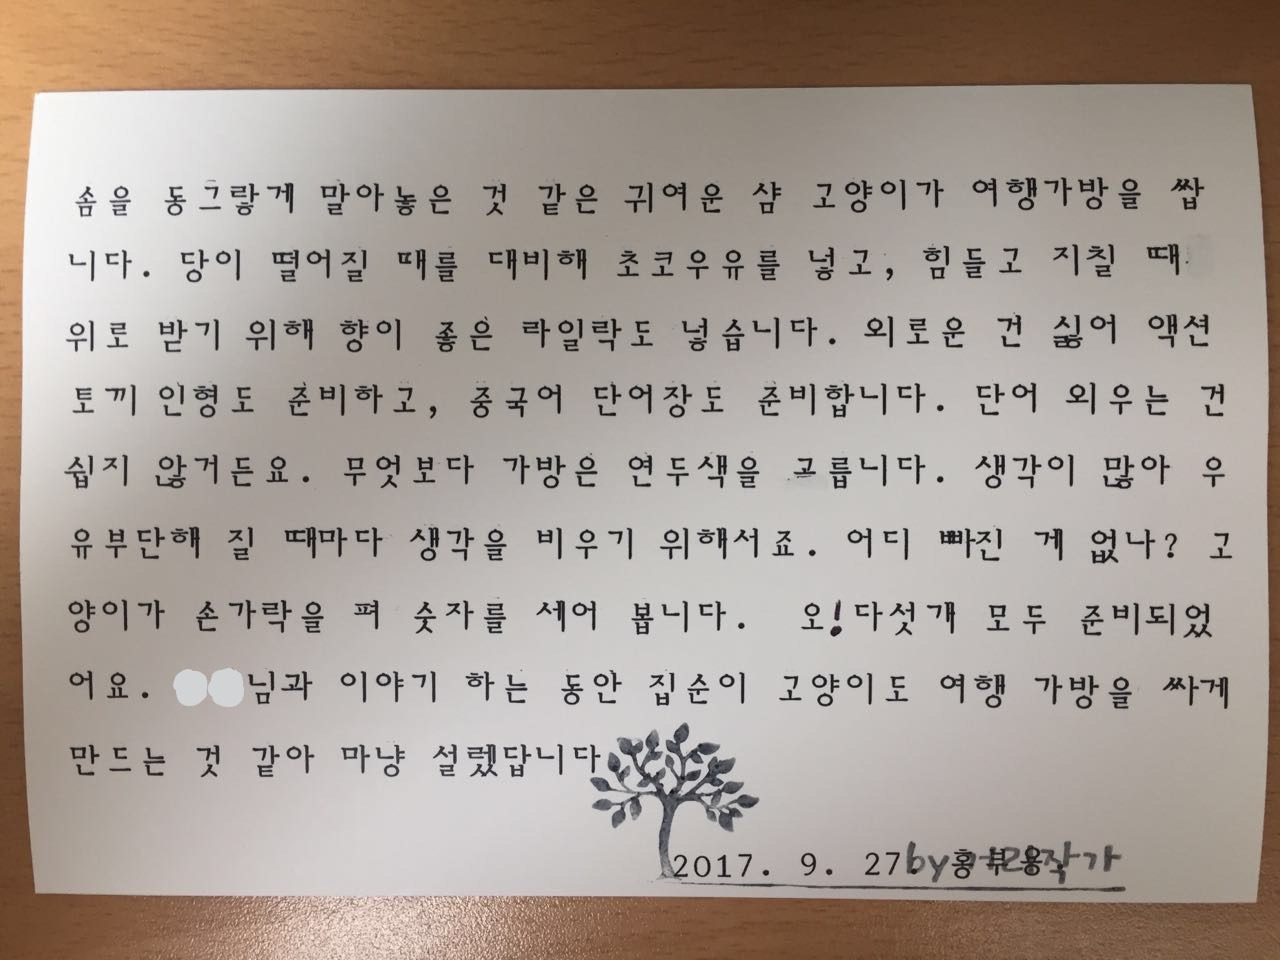 솜을 동그랗게 말아놓은 것 같은 귀여운 샴 고양이가 여행가방을 쌉
니다. 당이 떨어질 때를 대비해 초코우유를 넣고, 힘들고 지칠 때
위로 받기 위해 향이 좋은 라일락도 넣습니다. 외로운 건 싫어 액션
토끼 인형도 준비하고, 중국어 단어장도 준비합니다. 단어 외우는 건
쉽지 않거든요. 무엇보다 가방은 연두색을 고릅니다. 생각이 많아 우
유부단해 질 때마다 생각을 비우기 위해서죠. 어디 빠진 게 없나? 고
양이가 손가락을 펴 숫자를 세어 봅니다. 오!다섯개 모두 준비되었
어요. 님과 이야기 하는 동안 집순이 고양이도 여행 가방을 싸게
만드는 것 같아 마냥 설렜답니다
2017. 9. 27.by 홍부용